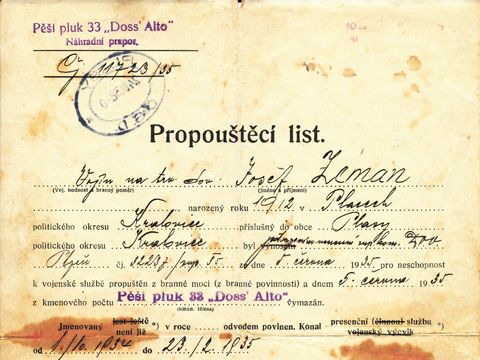 Pěší pluk 33 „Doss' Alto"
Náhradní prapor.
Čj. 11723/35
Propouštěcí list.
Vojín na trv. dov. Josef Zeman
(Voj. hodnost a branný poměr) (Jméno a příjmení)
narozený roku 1912 v Plasech
politického okresu Kralovice příslušný do obce Plasy
politického okresu Kralovice byl
Plzeň čj. 3223 ze dne 5. června 1935 pro neschopnost
k vojenské službě propuštěn z branné moci (z branné povinnosti) a dnem 5. června 1935
z kmenového počtu Pěší pluk 33 „Doss' Alto" vymazán.
(kmen. tělesa)
Jmenovaný jest ještě v roce odvodem povinen. Konal presenční (činnou) službu
není již vojenský výcvik
od 1./6. 1934 do 23./2. 1935